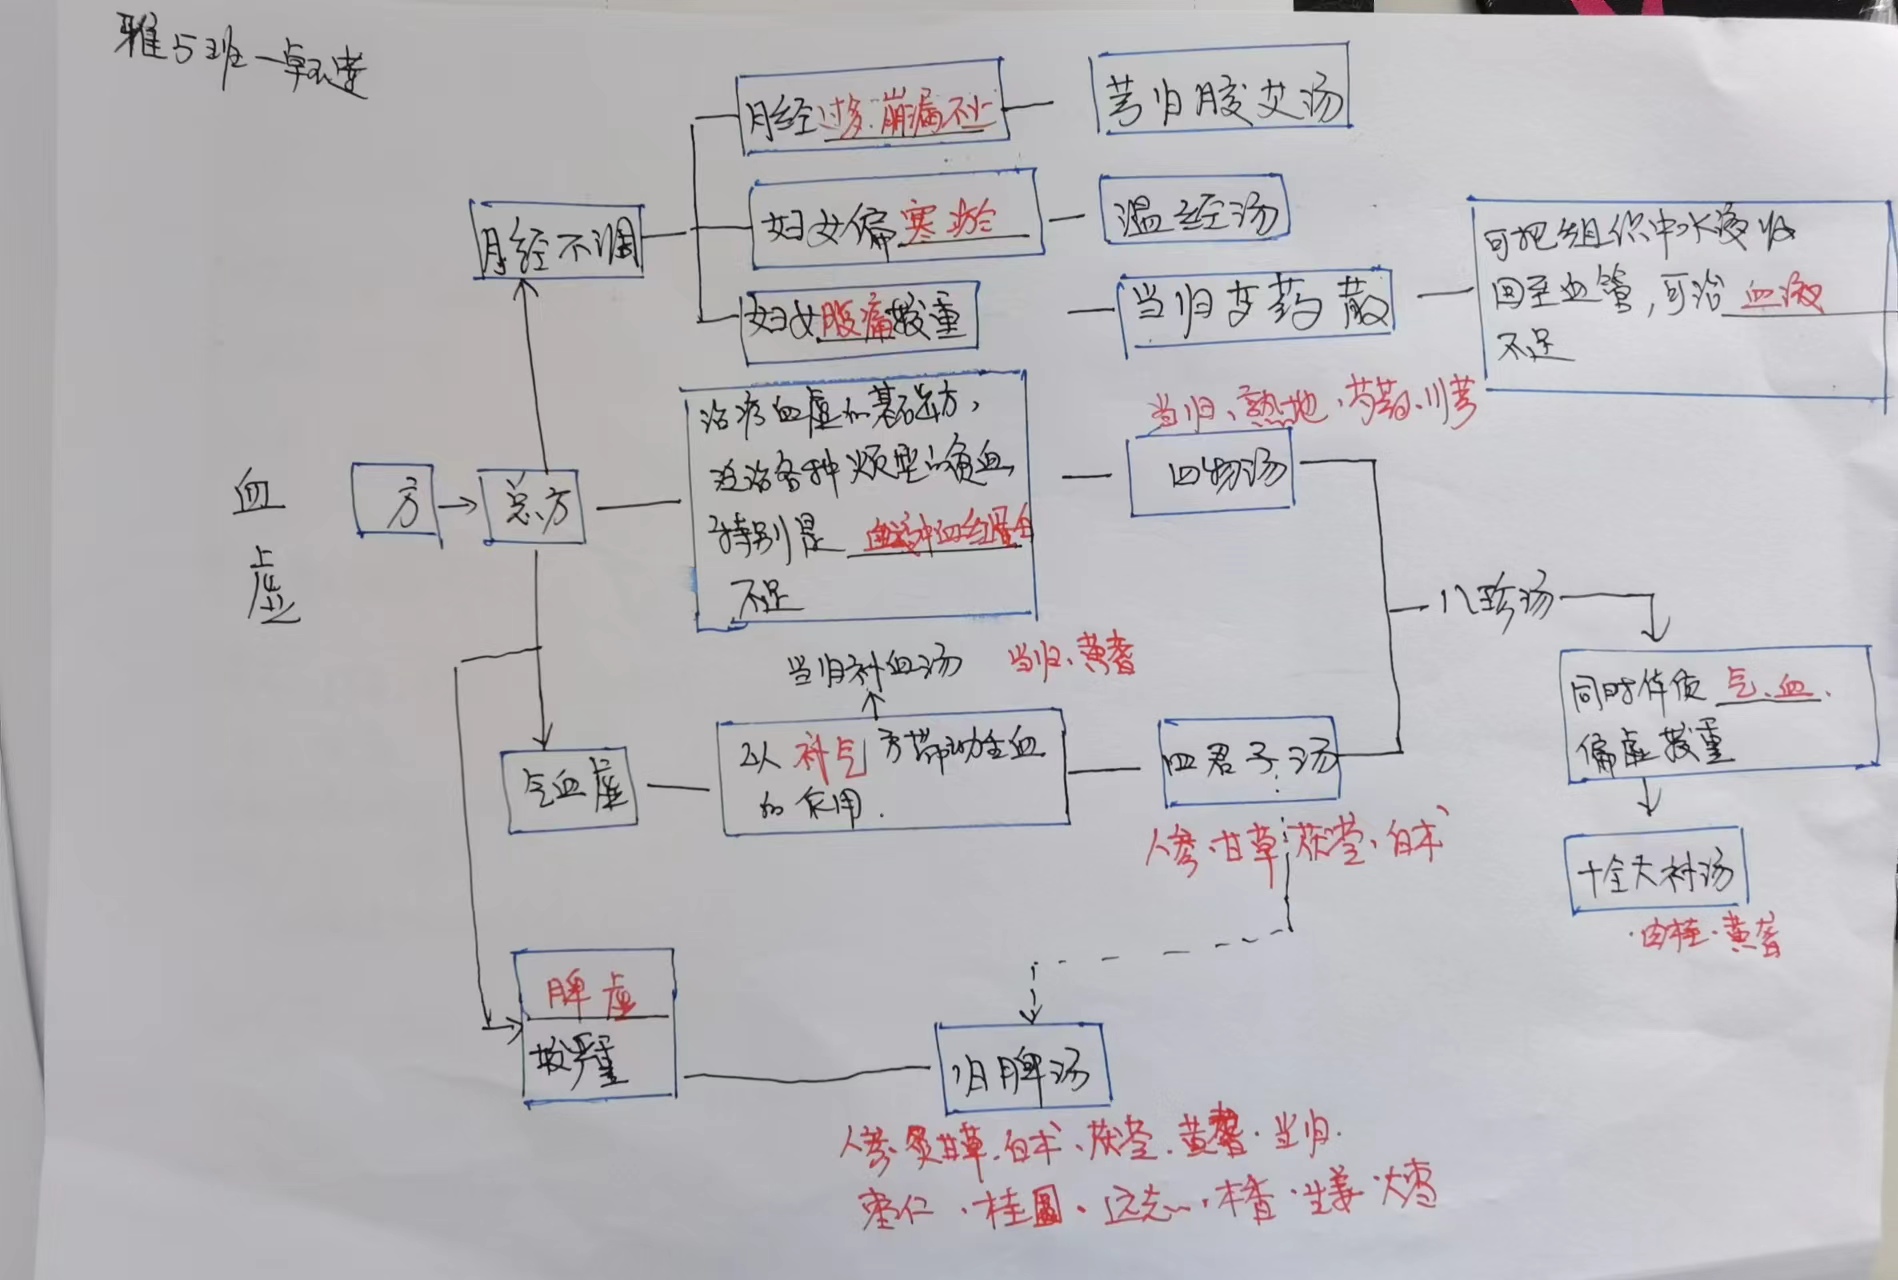 雅5班一卓
月经过多.崩漏不止
芎归胶艾汤
月经不调
妇女偏寒瘀
温经汤
妇女腹痛较重
当归芍药散
可把组织中水液收
回至血管,可治血液
不足
血虚
方
总方
治疗血虚的基础方,
泛治各种类型的贫血,
特别是血液中血红蛋白
不足
当归、熟地、芍药、川芎
四物汤
八珍汤
当归补血汤 当归、黄耆
气血虚
以补气方带动生血
的作用.
四君子汤
人参.甘草.茯苓、白术
同时体质气.血.
偏虚较重
十全大补汤
.肉桂.黄耆
脾虚
较严重
归脾汤
人参.炙甘草.白术、茯苓.黄耆.当归.
枣仁.桂圆、远志.木香.生姜.大枣